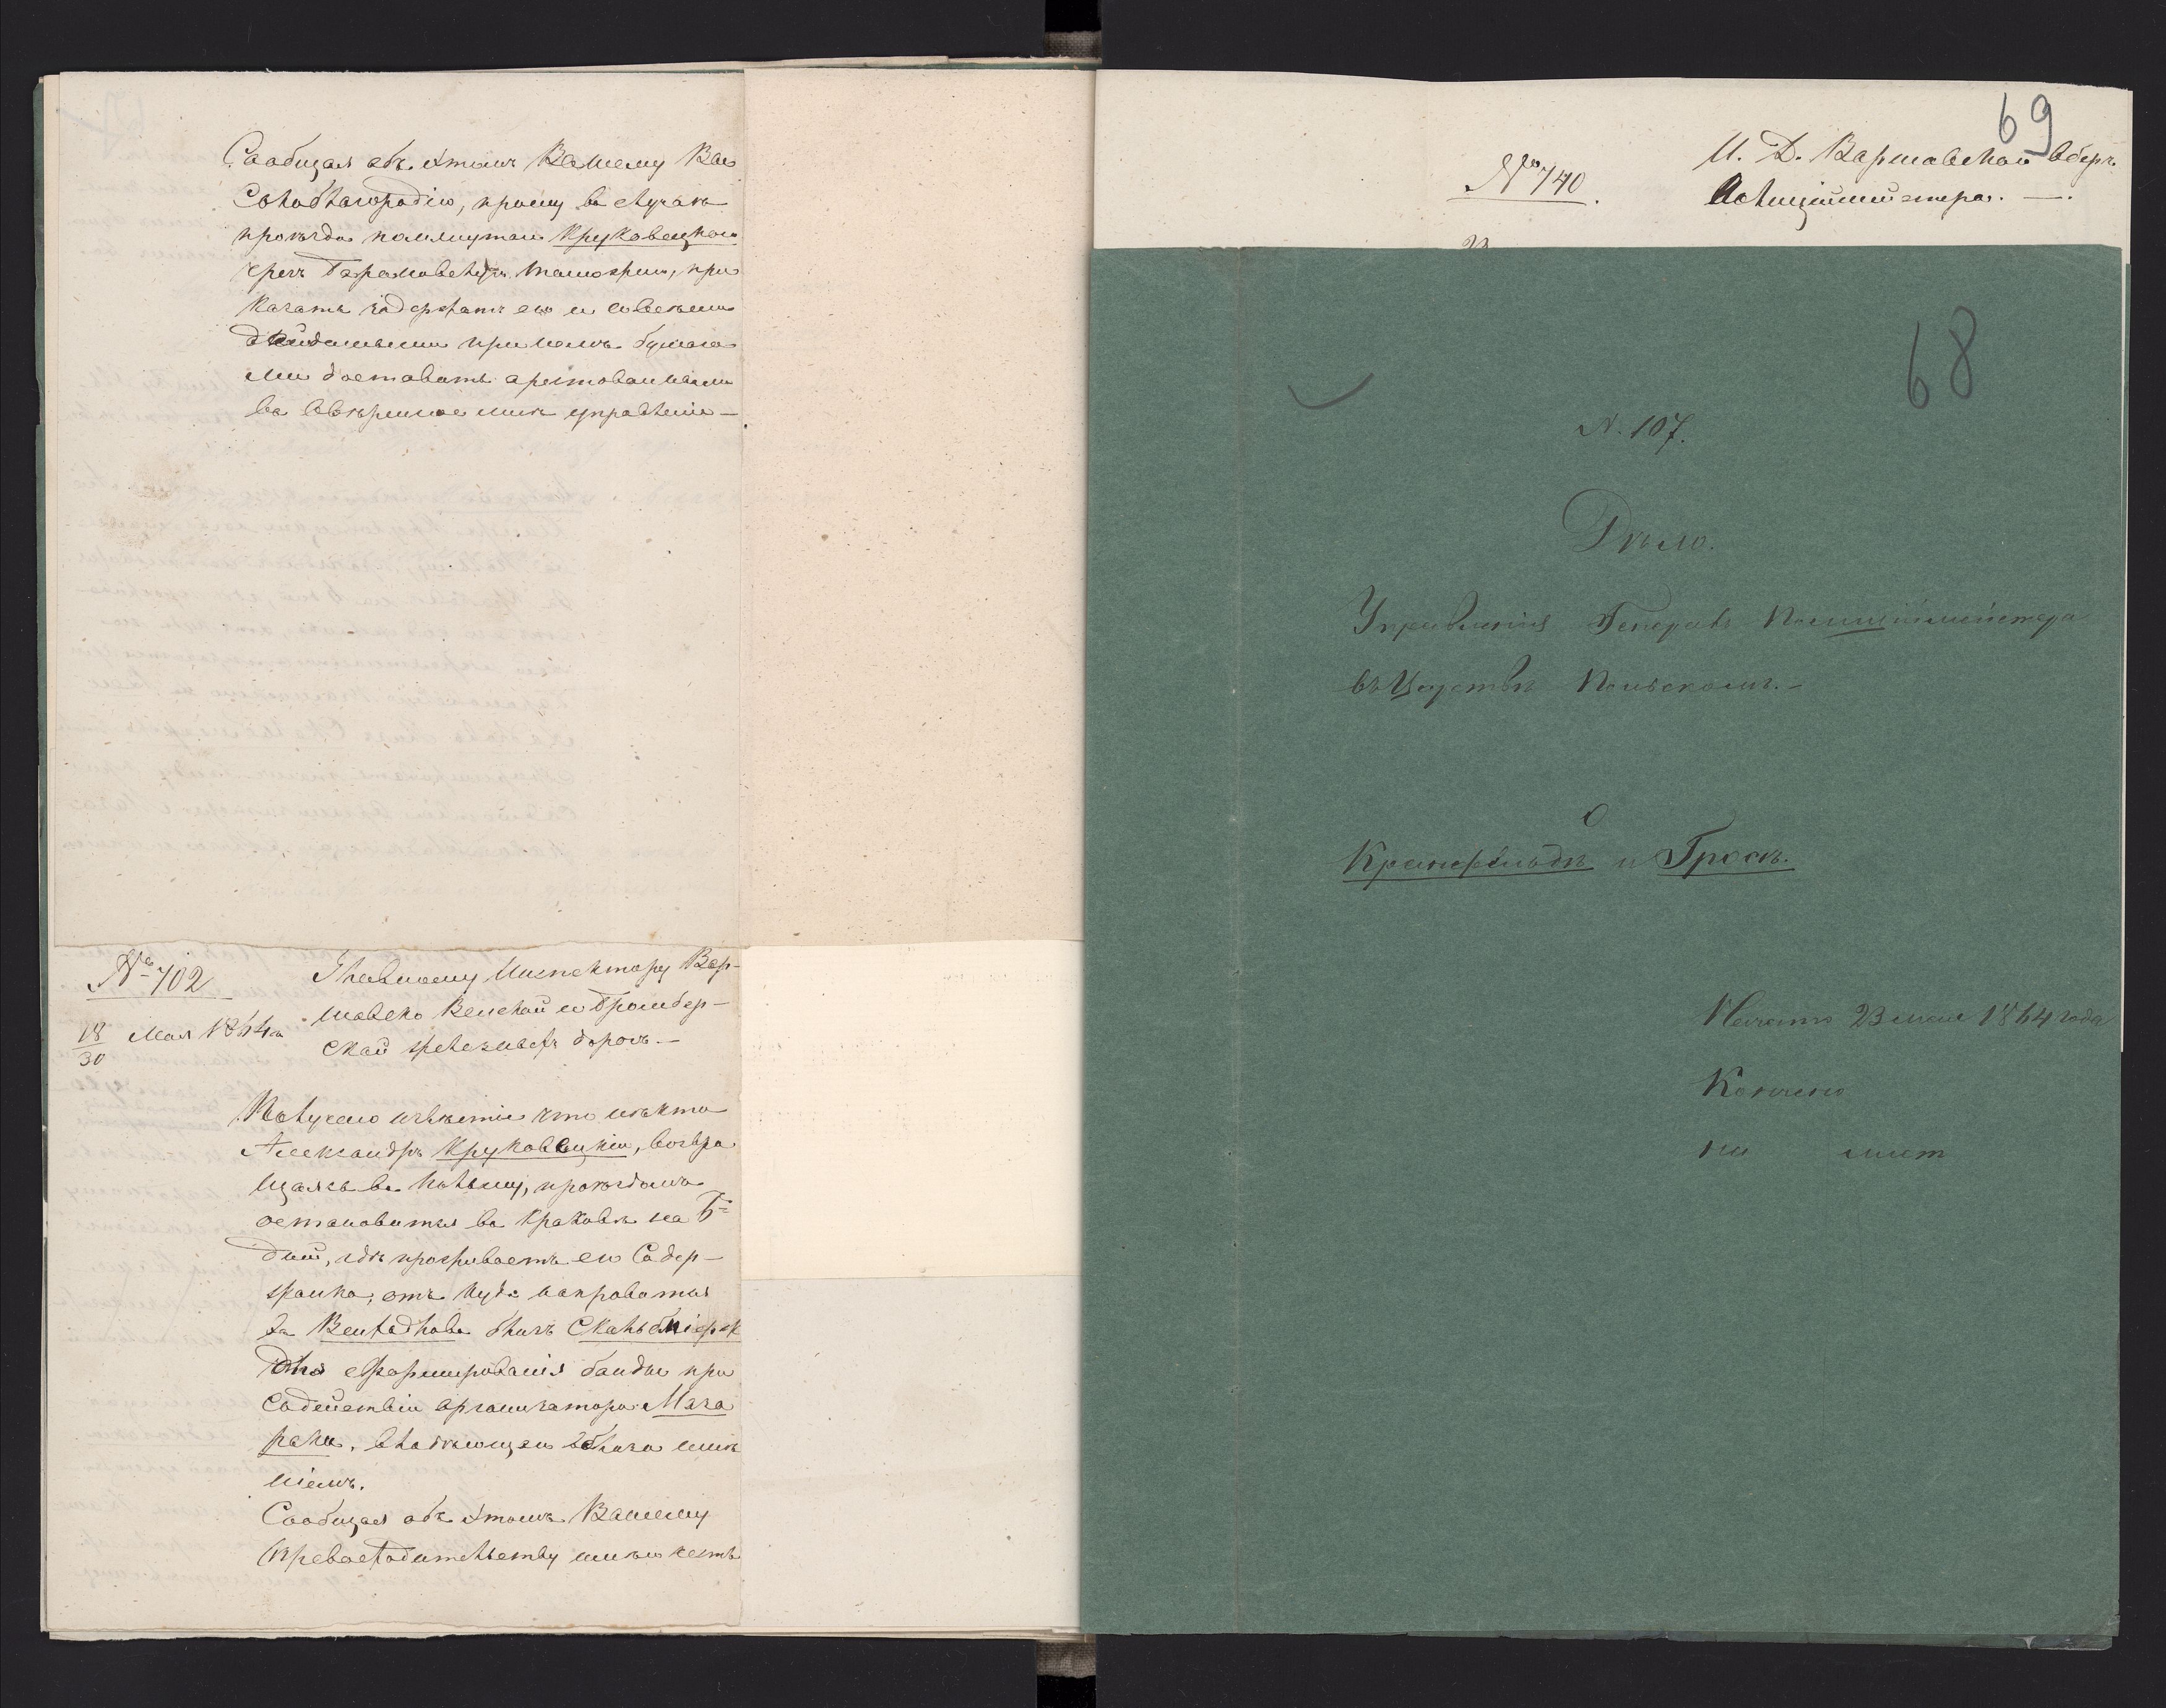 Сообщая объ этомъ Вашему Вы
сокоблагородію, прошу въ случаѣ
проѣзда помянутаго Круковецкаго
чрезъ таможню, при
казать задержать его и со всѣми
при немъ бумага
ми доставить арестованнымъ
во ввѣренное мнѣ управленіе —
№ 702
18/30 Мая 1864 г.
Главному Инспектору Вар-
шавско Венской и Бромберг-
ской желѣзныхъ дорогъ. —
Получено извѣстіе что нѣкто
Александръ Круковецкій, возвра
щаясь въ Польшу, проѣздомъ
остановится въ Краковѣ на 6
дней, гдѣ проживаетъ его Содер-
жанка, отъ куда направится
за близъ
для сформированія банды при
содействіи организатора Маза
раки, владѣющаго
ніемъ.
Сообщая объ этомъ Вашему
Превосходительству имѣю честь
69
№ 740.
И. Д. Варшавскаго Оберъ
Полиціймейстера. —
68
N. 107.
Дѣло.
Управленія Генералъ Полиціймейстера
въ Царствѣ Польскомъ. —
О
Кранцфельдѣ и Гросъ.
Начато 23 мая 1864 года
Кончено
на лист